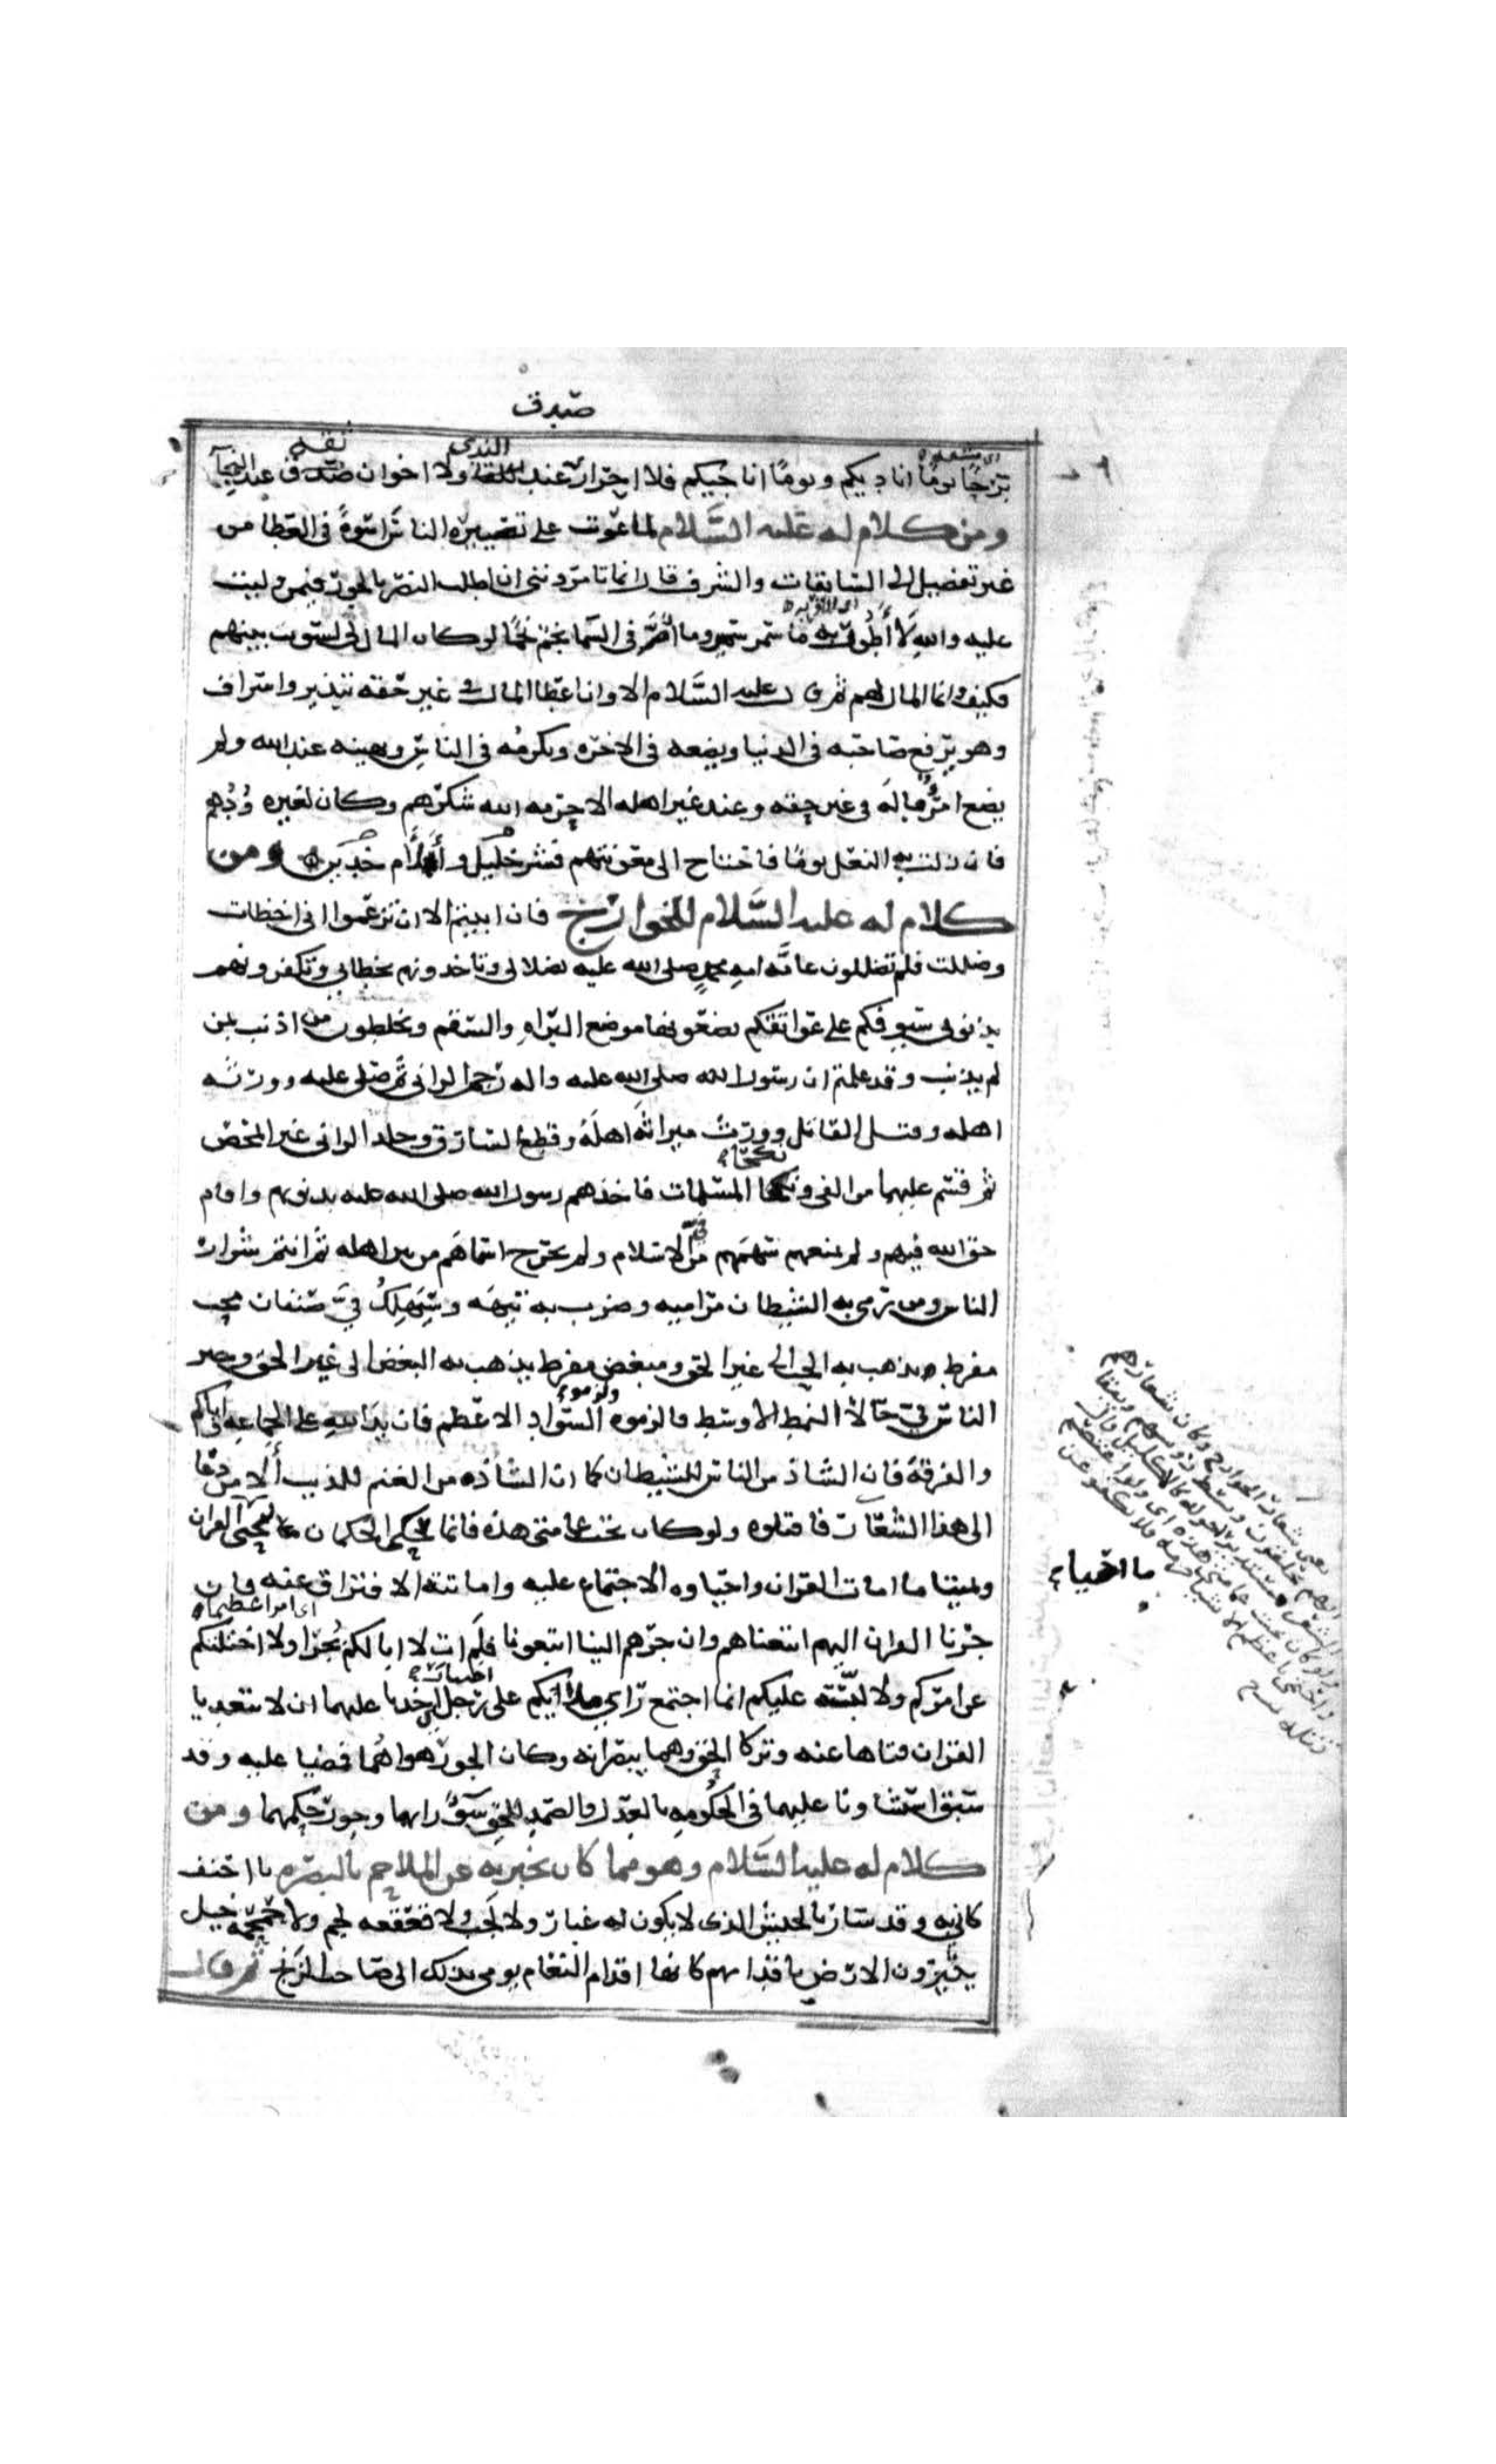 صدق
ترحًا يومًا اناديكم ويومًا اناجيكم فلا احرار عند اللقاء ولا اخوان صدق عند النجآ
النداء
ثقه
ومن كلام له عليه السَّلام لما عوتب على تصييره الناس اسوةً فى العطا من
غير تفضيل الى السابقات والشرف قال اتامرونني ان اطلب النصر بالجور فيمن وليت
عليه والله لَا أَطُور به ما سمر سمير وما امَّ نجم فى السما نجمًا لو كان المال لى لسويت بينهم
فكيف وانما المال لهم ثم قال عليه السَّلام الا وان اعطا المال فى غير حقه تبذير واسراف
وهو يرفع صاحبه فى الدنيا ويضعه فى الاخره ويكرمُه فى الناس ويهينه عند الله ولم
يضع امرؤ ماله فى غير حقه وعند غير اهله الا حرمه الله شكرهم وكان لغيره وُدُهم
فان زلت به النعل يومًا فاحتاج الى معونتهم فشر خليل وأَلأَم خدين ومن
كلام له عليه السَّلام للخوارج فان ابيتم الا ان تزعموا انى اخطات
وضللت فلم تضللون عامَّه امه محمدٍ صلى الله عليه بضلالى وتاخذونهم بخطاى وتكفرونهم
بذنوبى سيوفكم على عواتقكم تضعونها موضع البراه والسقم وتخلطون من اذنب بمن
لم يذنب وقد علمتم ان رسول الله صلى الله عليه واله رجم الزانى ثم صلى عليه وورثه
اهله وقتل القاتل وورث ميراثَه اهلَهُ وقطع السارق وجلد الزانى غير المحصن
ثم قسم عليهما من الفى ونكحا المسلمات فاخذهم رسول الله صلى الله عليه بذنوبهم واقام
حق الله فيهم ولم يمنعهم سهمَهم من الاسلام ولم يخرج اسماهَم من بين اهله ثم انتم شرار
الناس ومن رمى به الشيطان مراميه وضرب به تيهَه وسَيَهلِكُ فِيَّ صنفان محب
مفرط يذهب به الحب الى غير الحق ومبغض مفرط يذهب به البغض الى غير الحق وخير
الناس فىّ حَالاً النمط الاوسط فالزموه والزموا السواد الاعظم فان يد الله على الجماعه واياكم
والفرقة فان الشاذ من الناس للشيطان كما ان الشاذه من الغنم للذيب أَلَا من دعا
الى هذا الشعار فاقتلوه ولو كان تحت عمامتى هذه فانما حُكّم الحكمان ليحييا ما احيا القران
ويميتا ما امات القران واحياوه الاجتماع عليه واماتته الافتراق عنه فان
ما احياء
اى امرا عظيما
جرنا القران اليهم اتبعناهم وان جرهم الينا اتبعونا فلَم ات لا ابا لكم بُجرًا ولا اختلتكم
عن امركم ولا لبَّسته عليكم انما اجتمع راى ملائكم على رجلين اخذنا عليهما ان لا يتعديا
القران فتاها عنه وتركا الحق وهما يبصرانه وكان الجور هواهُما فمضيا عليه وقد
سبق استثناونا عليهما فى الحكُومهِ بالعدل والصمد للحق سوٓءَ رايهما وجور حكمهما ومن
كلام له عليه السَّلام وهو مما كان يخبر به عن الملاحم بالبصره يا احنف
كانى به وقد سار بالجيش الذى لا يكون له غبار ولا لَجب ولا قعقعه لجم ولا حمحمه خيل
يثيرون الارض باقدامهم كانها اقدام النعام يومى بذلك الى صاحب الزنج ثم قال